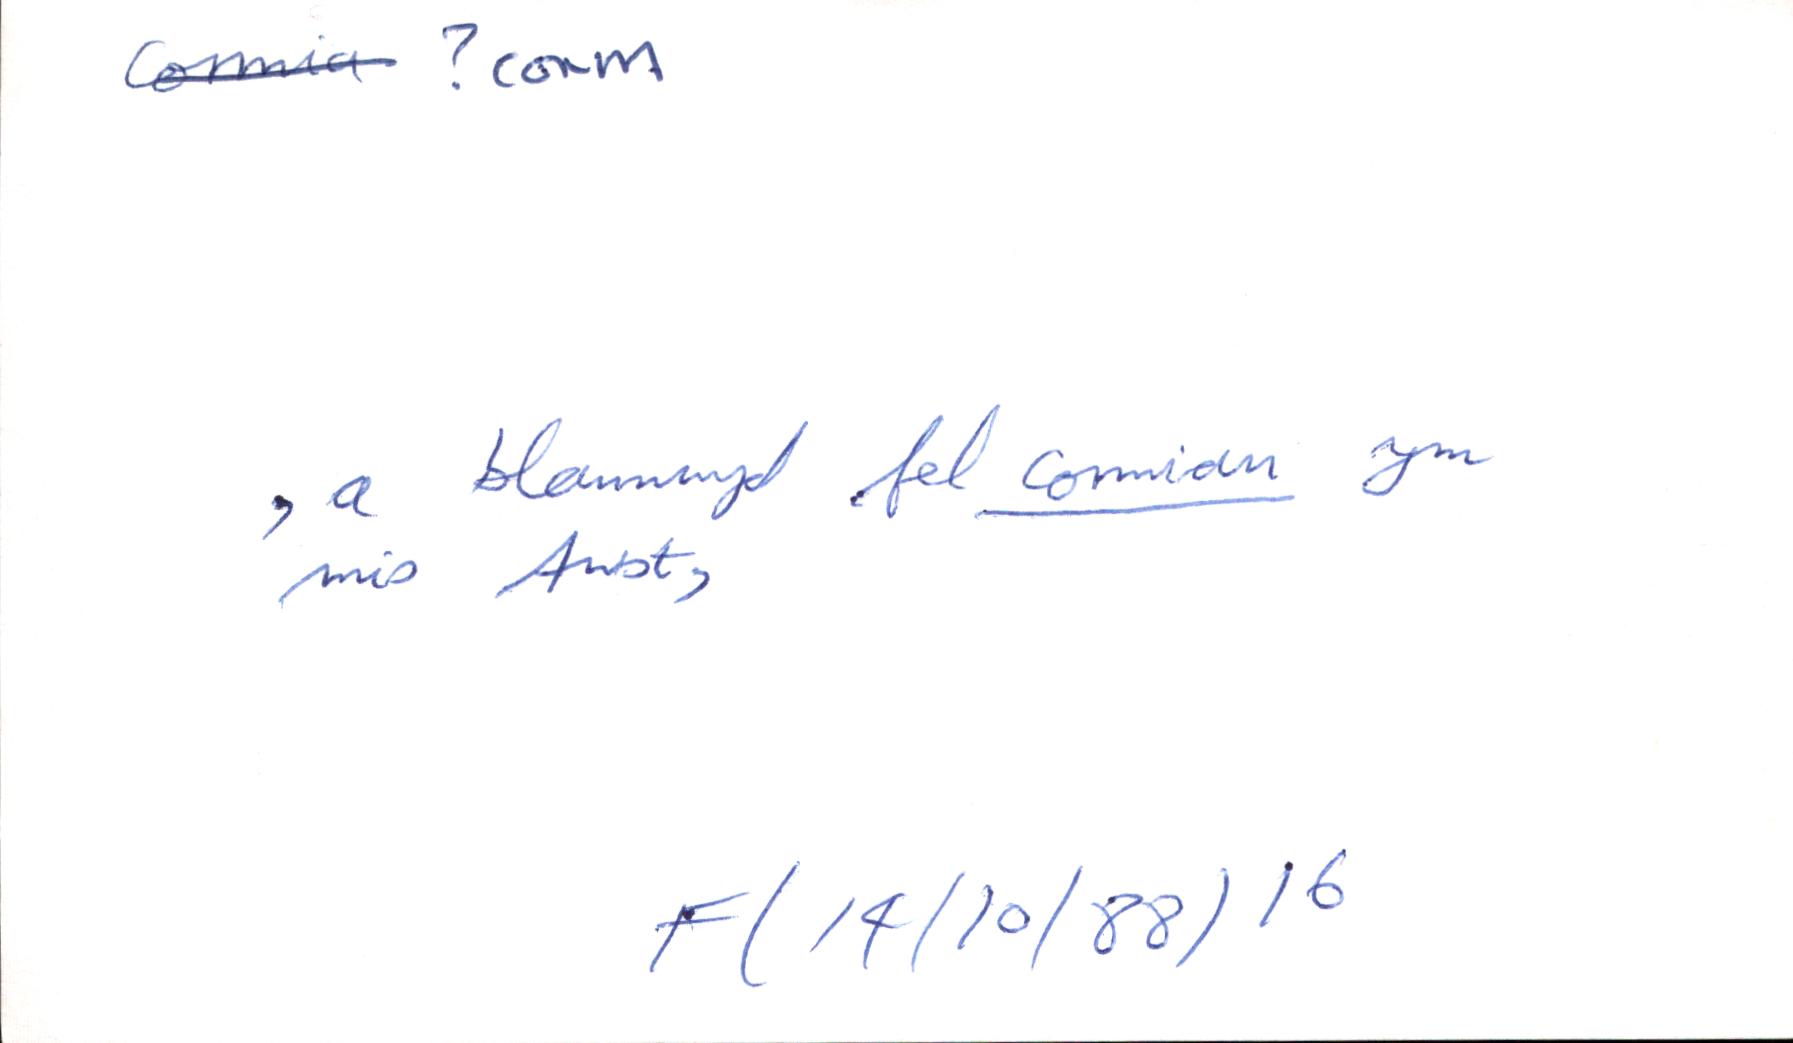 Cormia ?corm
, a blannwyd fel cormiau ym
mis Awst,
F(14/10/88)16